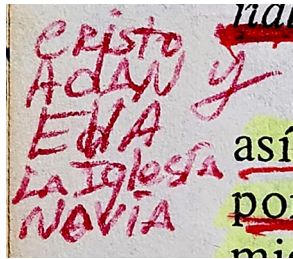 Cristo
ADAN y
EVA
LA IglesÍa
NOVÍA
así